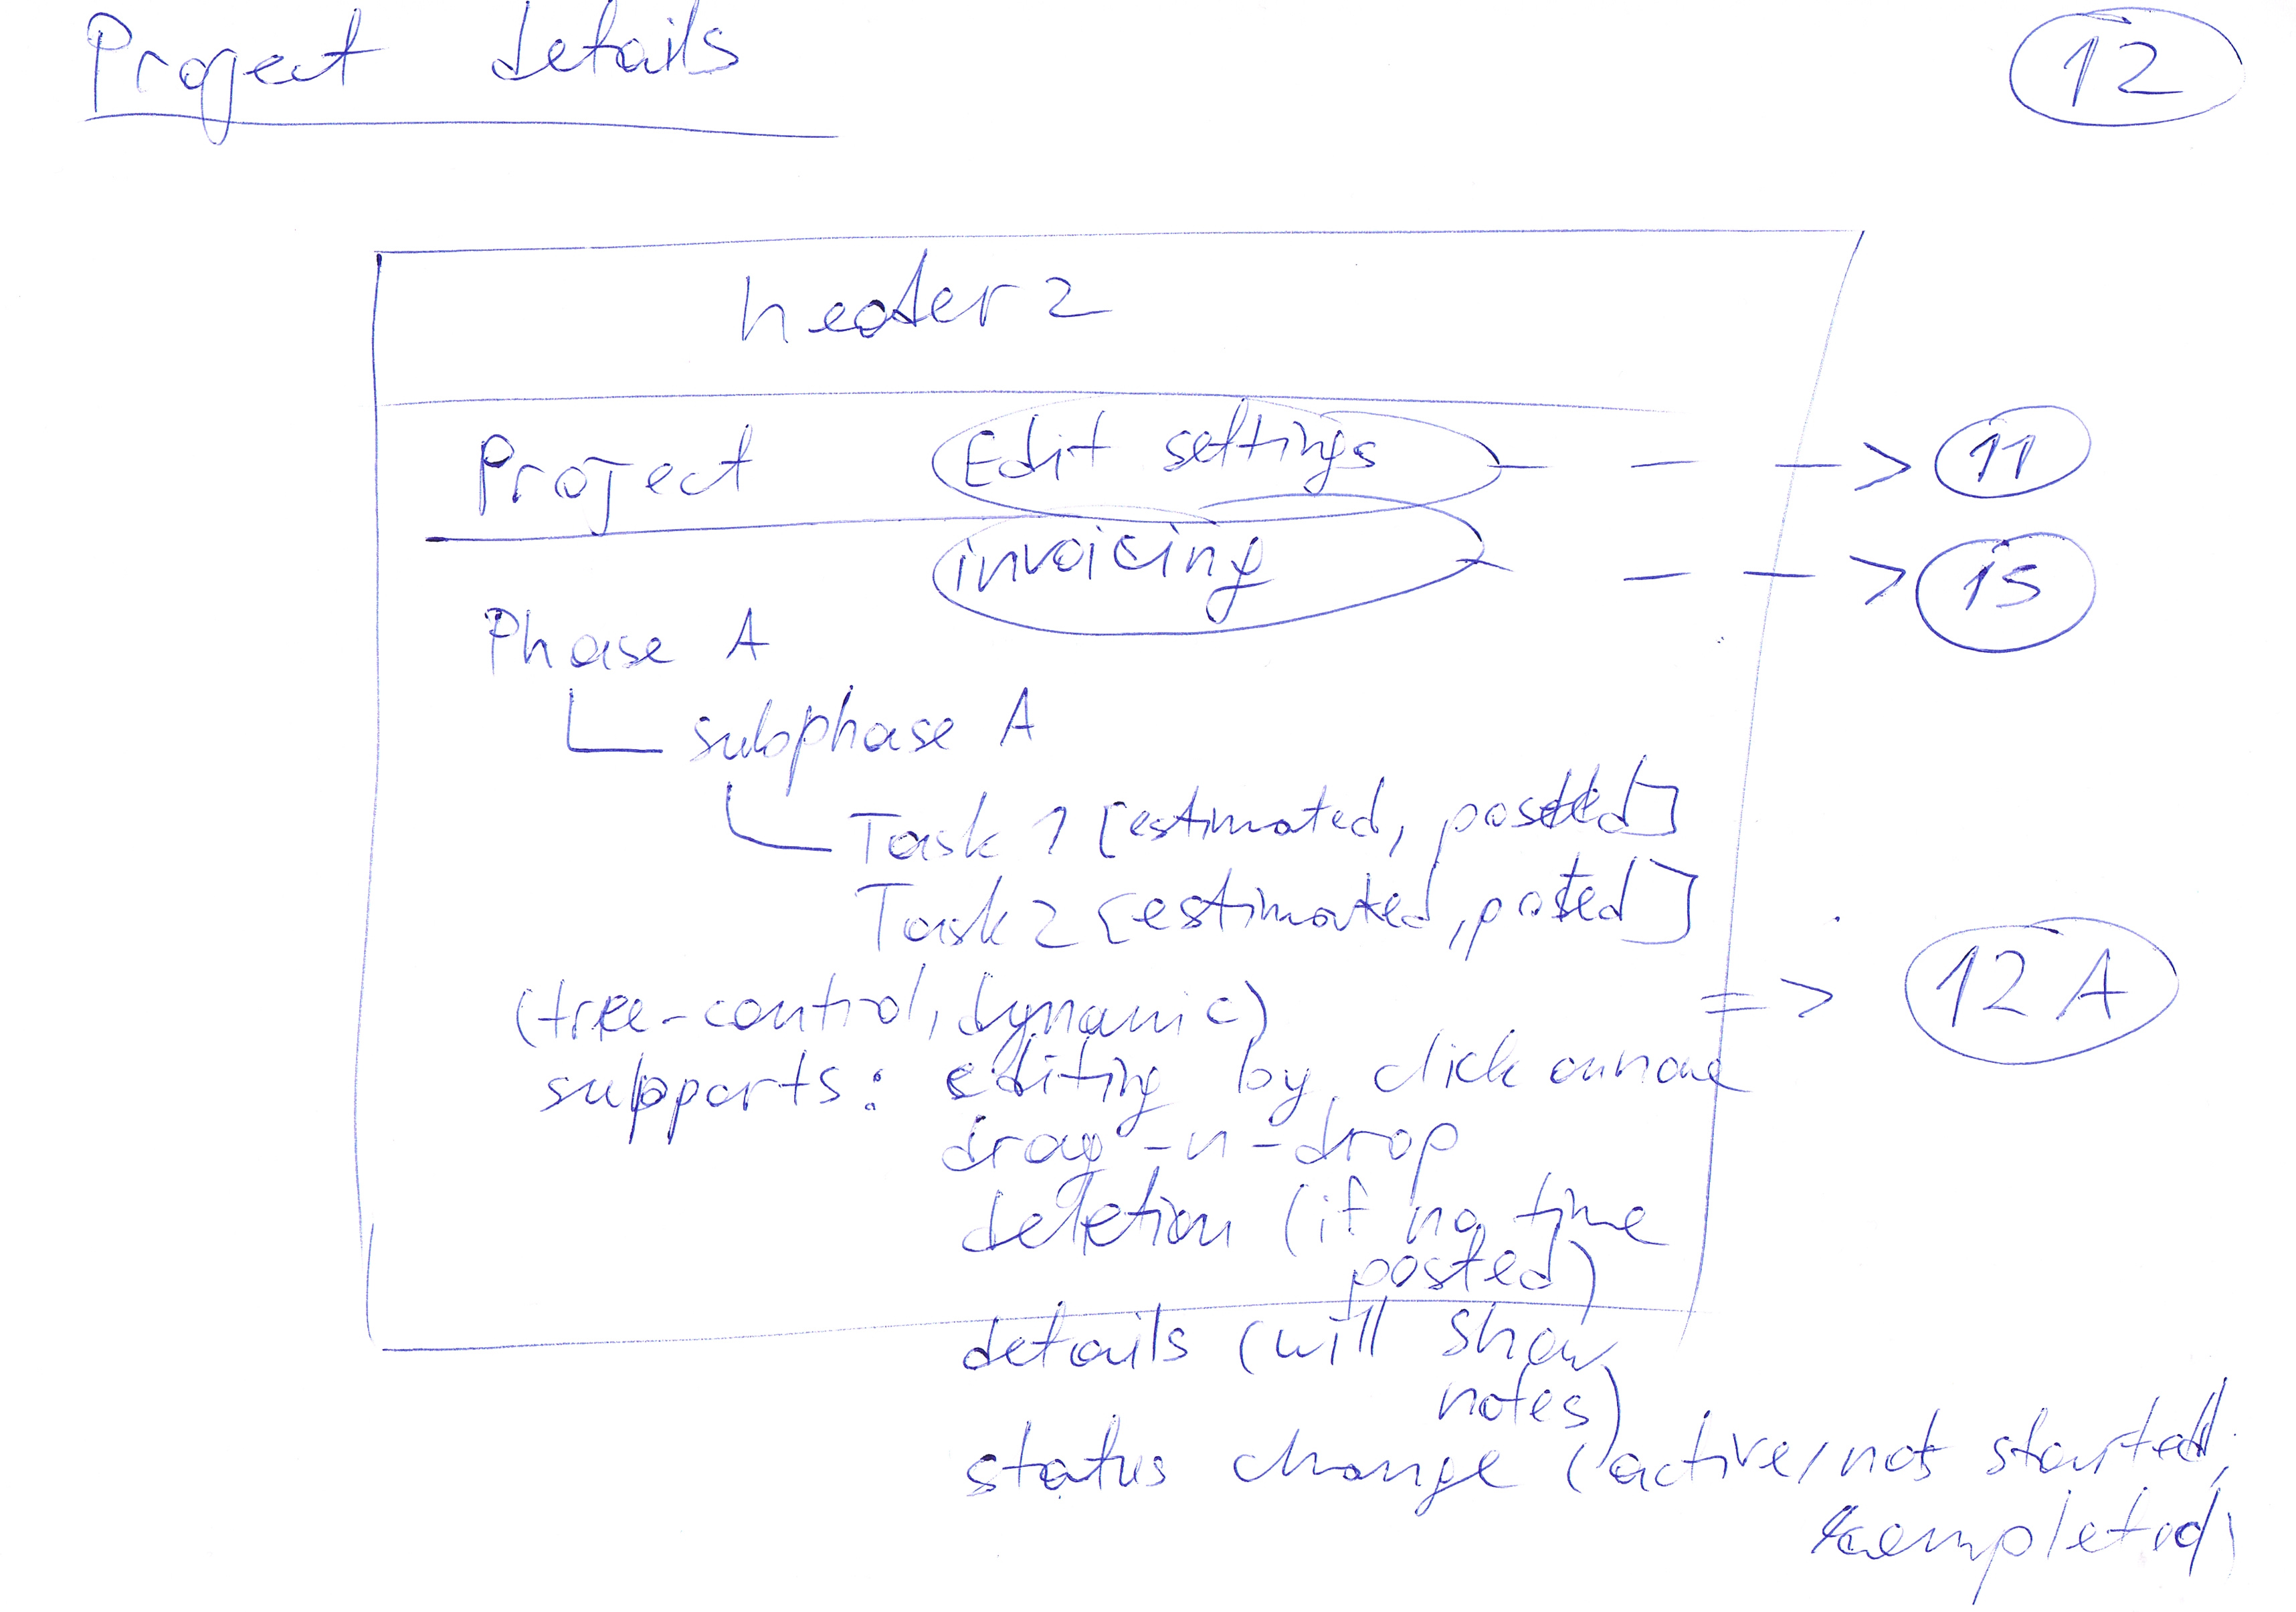 Project details 12
header 2
Project Edit settings - - -> 11
invoicing - - -> 15
Phase A
subphase A
Task 1 [estimated, posted]
Task 2 [estimated, posted]
(tree-control, dynamic) => 12 A
supports: editing by click on name
drag-n-drop
deletion (if no time
posted)
details (will show
notes)
status change (active, not started,
completed)